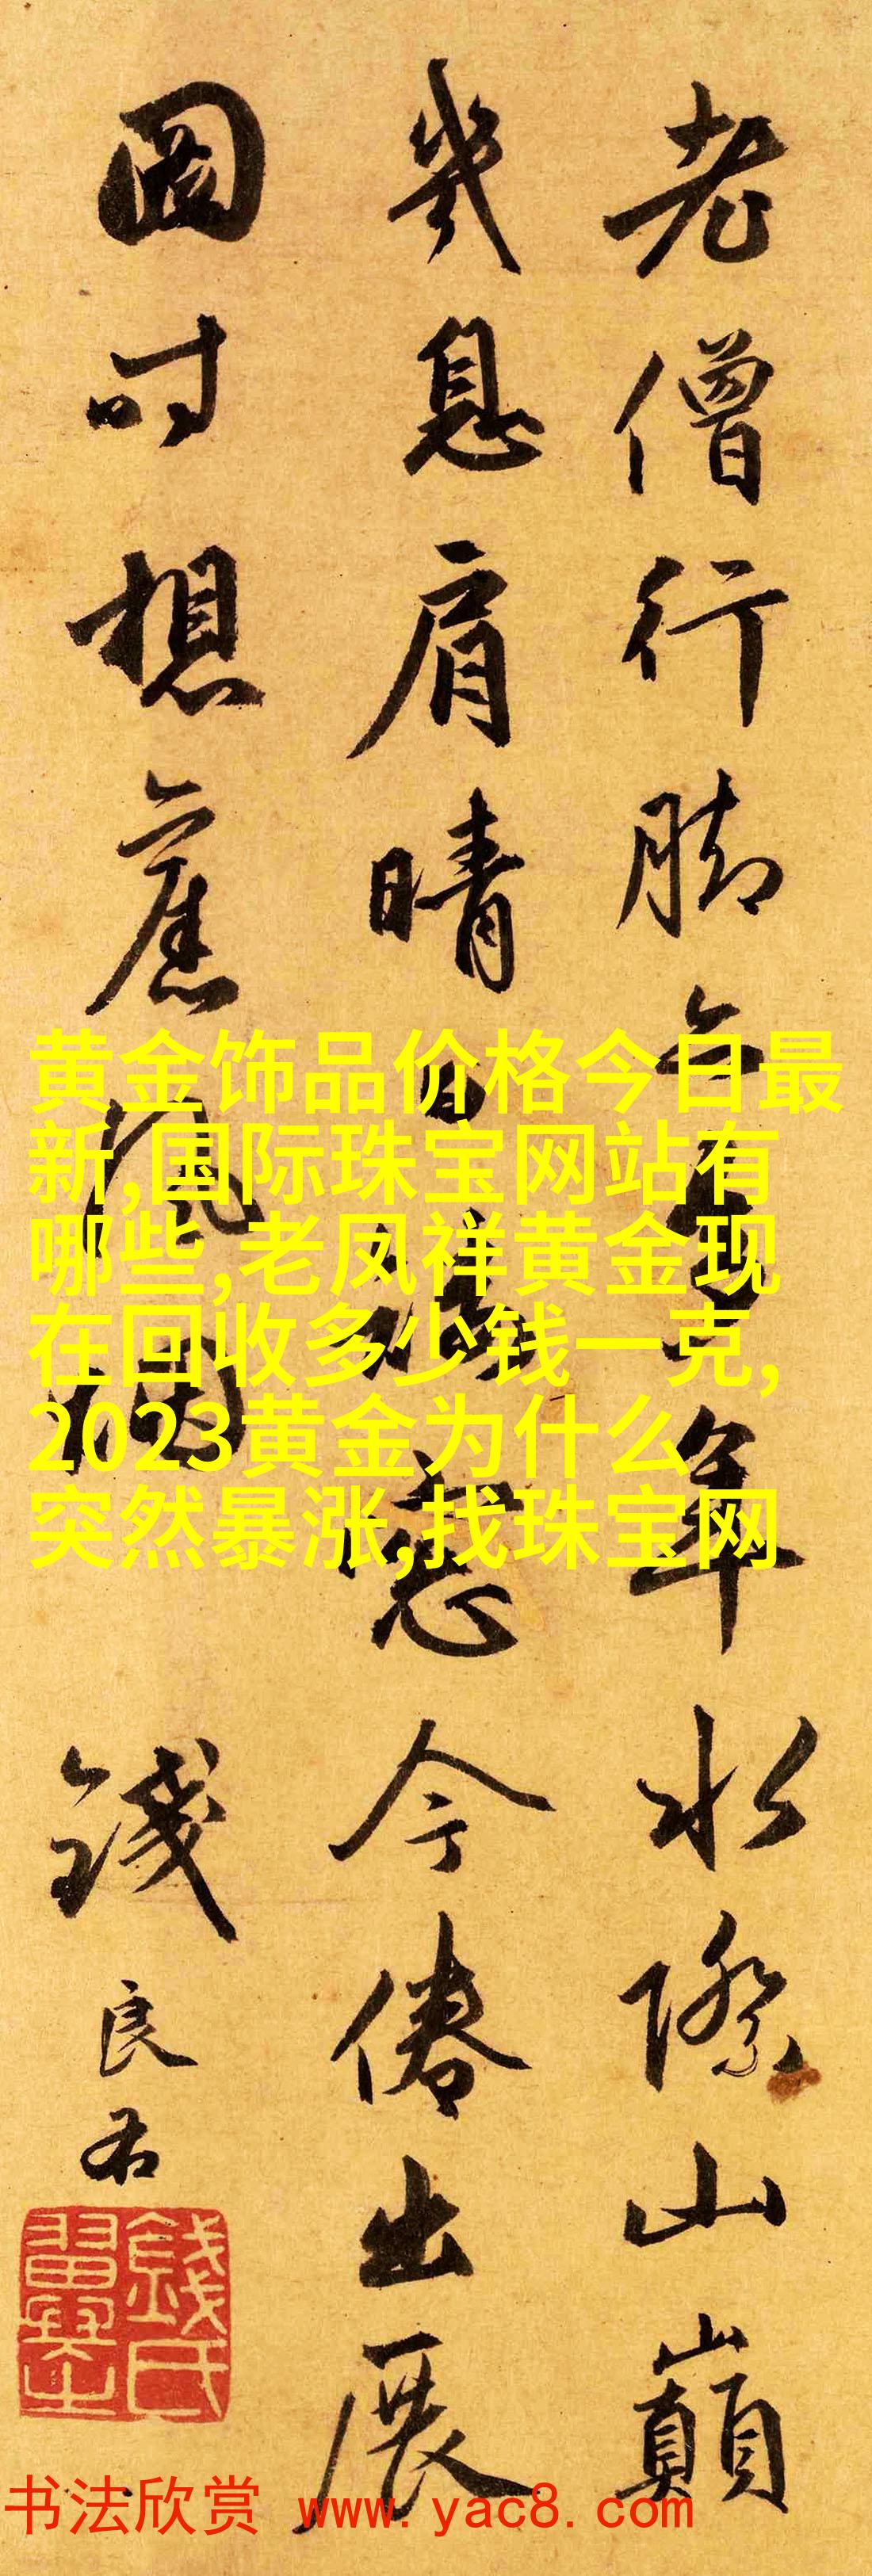 老僧行脚年水際山巔
幾息肩晴日窓今倦出展
圖时想舊風烟
錢良右
錢氏翼之
黄金饰品价格今日最
新,国际珠宝网站有
哪些,老凤祥黄金现
在回收多少钱一克,
2023黄金为什么
突然暴涨,找珠宝网
书法欣赏 www.yac8.com